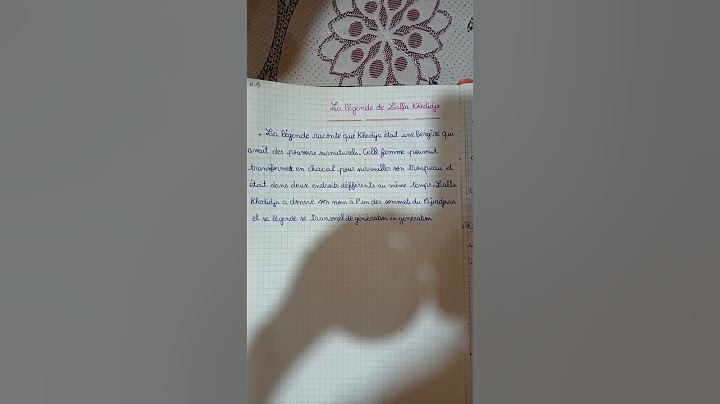 La légende de Lalla Khedidja
La légende raconte que Khedija était une Bergère qui
avait des pouvoirs surnaturels. Cette femme pouvait
transformer en chacal pour surveiller son troupeau et
était dans deux endroits différents au même temps. Lalla
Khedidja a donné son nom à l'un des sommets du Djurdjura
et sa légende se transmet de génération en génération